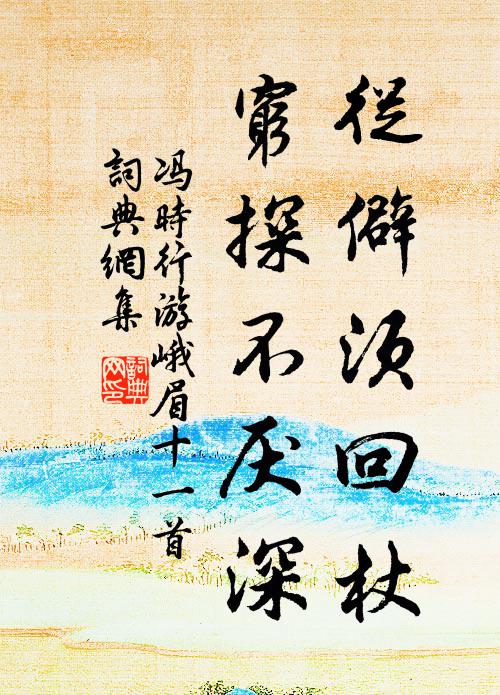 從僻須回杖
窮探不厌深
冯時行游峨眉十一首
詞典網集
詞典
网印